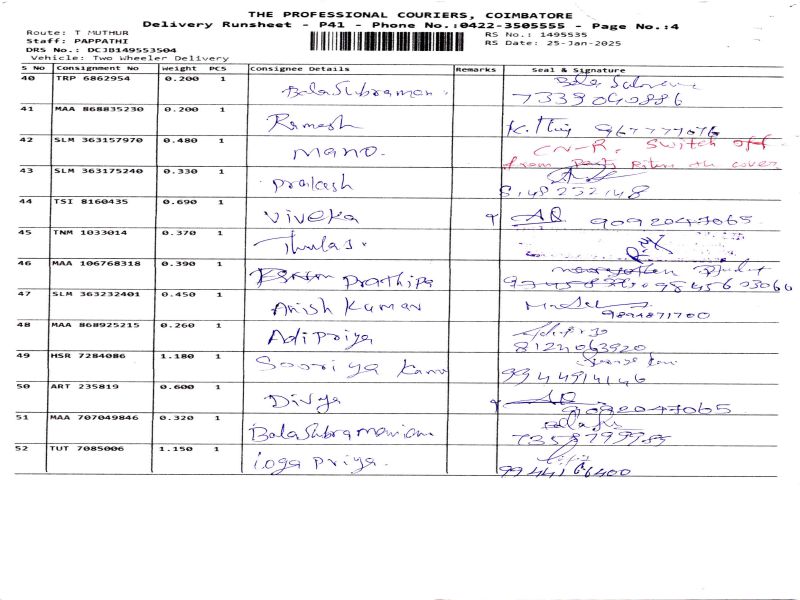 THE PROFESSIONAL COURIERS, COIMBATORE
Delivery Runsheet - P41 - Phone No.:0422-3505555 - Page No.:4
Route: T MUTHUR RS No.: 1495535
Staff: PAPPATHI RS Date: 25-Jan-2025
DRS No.: DCJB149553504
Vehicle: Two Wheeler Delivery
S No Consignment No Weight PCS Consignee Details Remarks Seal & Signature
40 TRP 6862954 0.200 1
BalaSubraman. 7339040886
41 MAA 868835230 0.200 1
Ramesh K.
42 SLM 363157970 0.480 1 CN-R, Switch off
Mano. from
43 SLM 363175240 0.330 1
Prakash
44 TSI 8160435 0.690 1
Viveka 9092047065
45 TNM 1033014 0.370 1
Thulas.
46 MAA 106768318 0.390 1
Prathipa
47 SLM 363232401 0.450 1
Anish Kumar 9894871700
48 MAA 868925215 0.260 1
Adi Priya 8124063920
49 HSR 7284086 1.180 1
Sooriya Kam 9944914146
50 ART 235819 0.600 1
Divya 9092047065
51 MAA 707049846 0.320 1
BalaSubramaniam
52 TUT 7085006 1.150 1
ioga Priya.